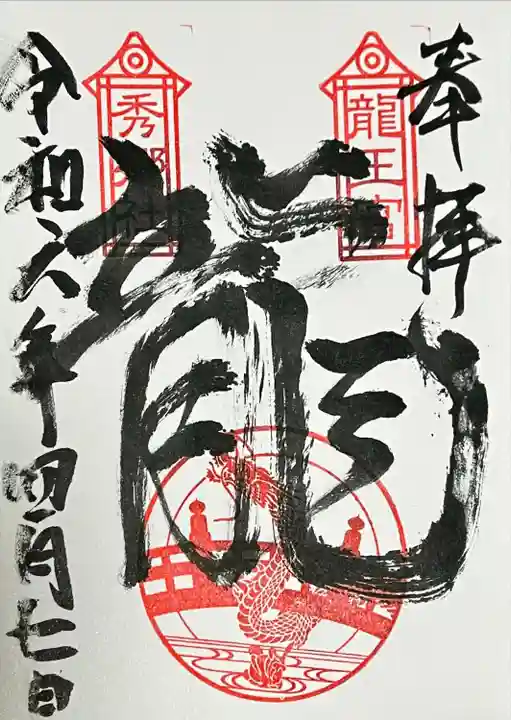 奉拝
龍王宮
龍
秀郷社
令和六年四月七日